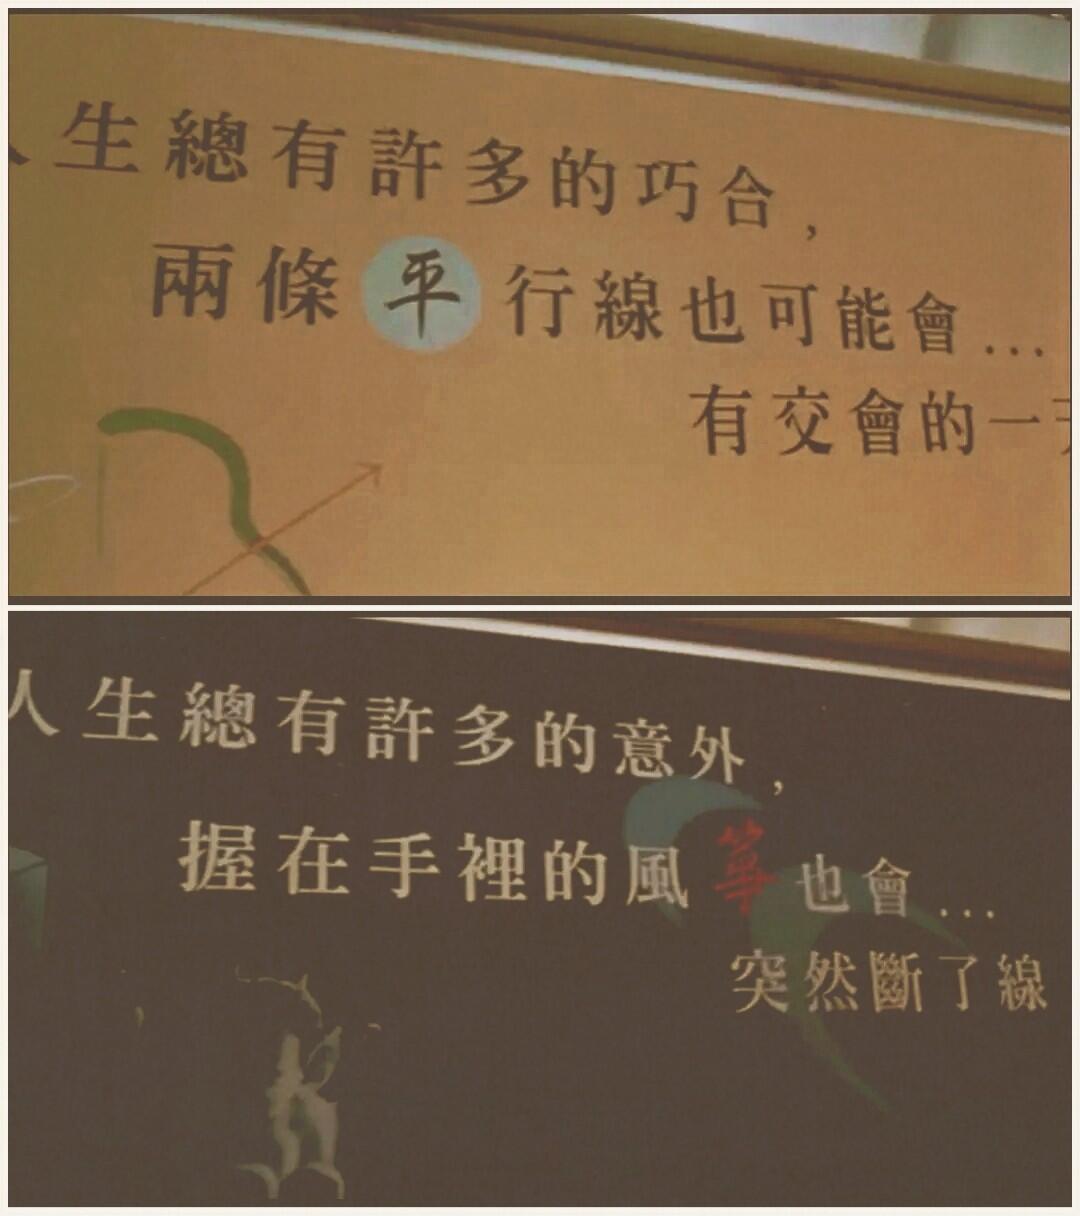 人生總有許多的巧合，
兩條平行線也可能會...
有交會的一天
人生總有許多的意外，
握在手裡的風箏也會...
突然斷了線